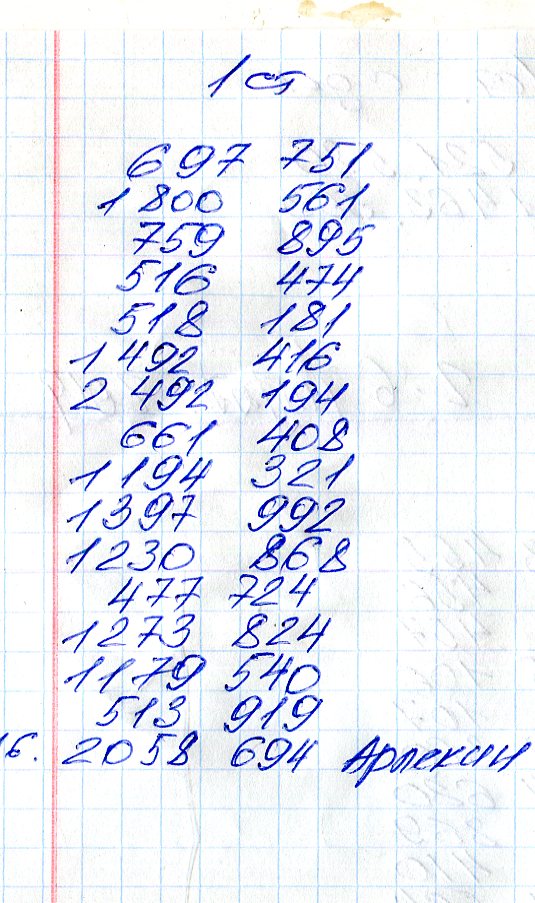 1 ст
697 751
1 800 561
759 895
516 474
518 181
1 492 416
2 492 194
661 408
1 194 321
1 397 992
1 230 868
477 724
1 273 824
1 179 540
513 919
16. 2 058 694 Арлекин